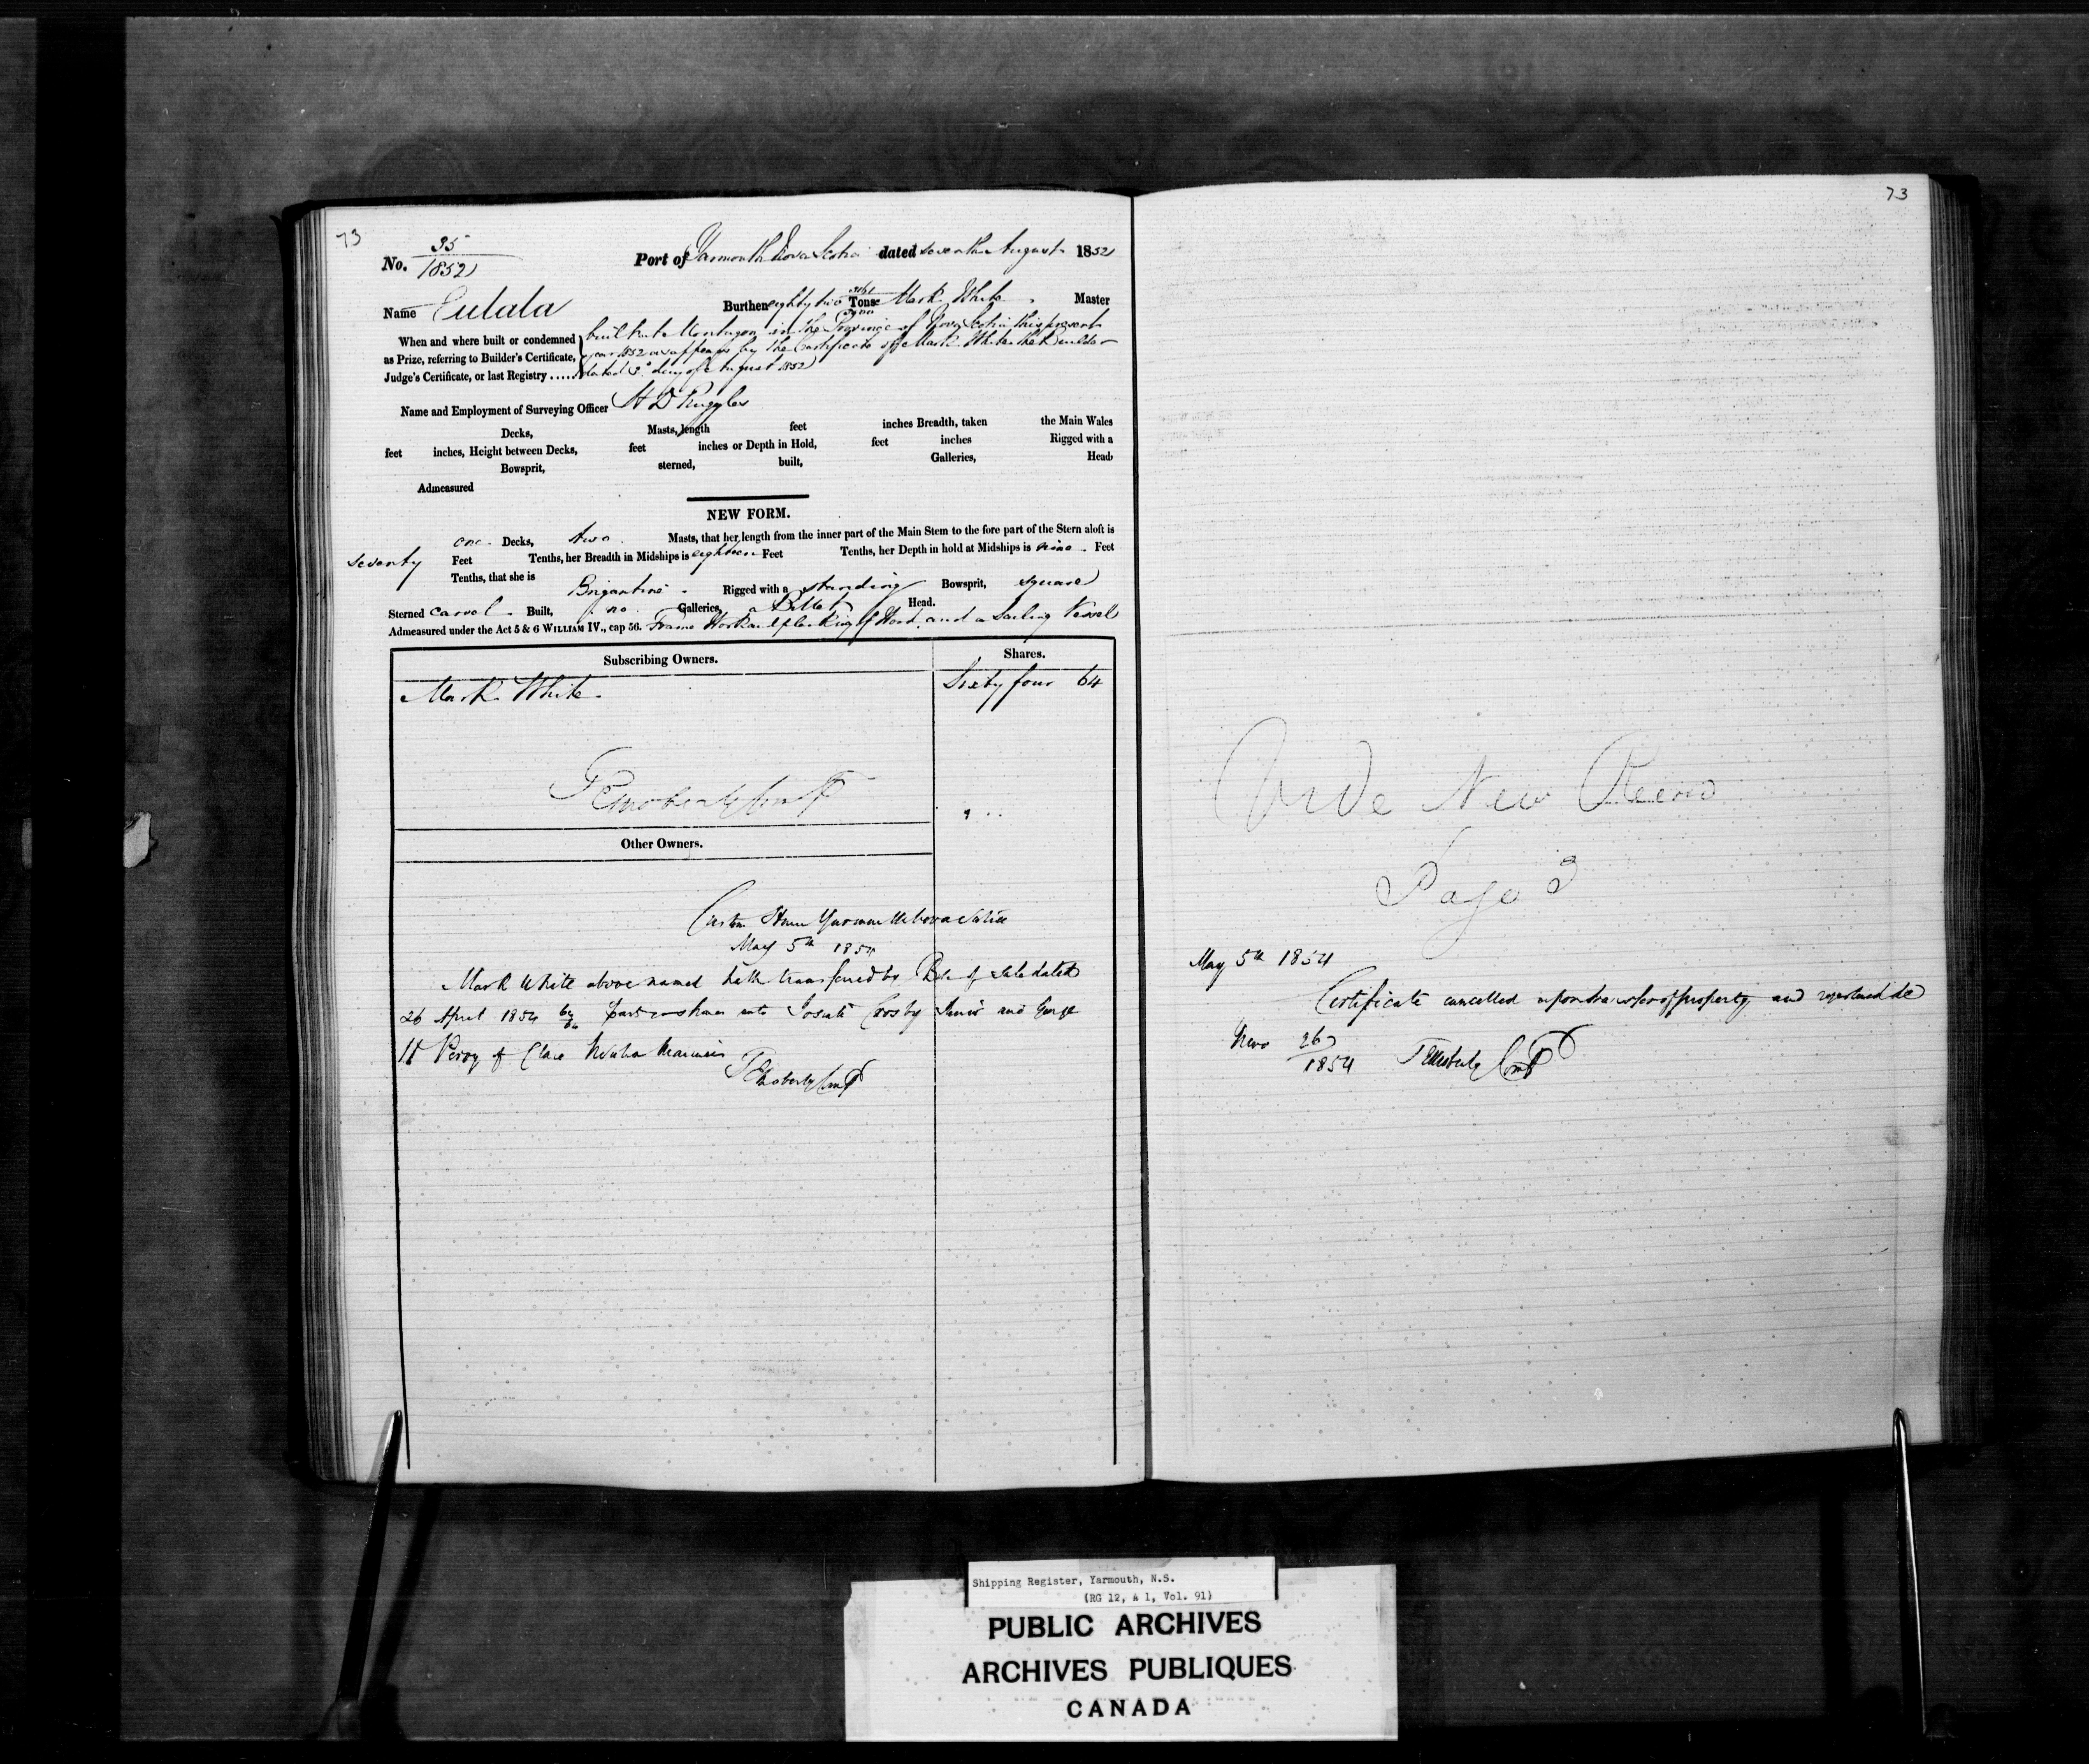 73
No. 35/1852
Port of Yarmouth Nova Scotia dated seventh August 1852
Name Eulala Burthen eighty two Tons Mark White Master
When and where built or condemned as Prize, referring to Builder's Certificate, Judge's Certificate, or last Registry .....
built at in the Province of Nova Scotia this present
year 1852 as appears by the Certificate of Mark White the Builder
dated day of August 1852
Name and Employment of Surveying Officer H D Ruggles
Decks, Masts, length feet inches Breadth, taken the Main Wales
feet inches, Height between Decks, feet inches or Depth in Hold, feet inches Rigged with a
Bowsprit, sterned, built, Galleries, Head,
Admeasured
NEW FORM.
one Decks, two Masts, that her length from the inner part of the Main Stem to the fore part of the Stern aloft is
seventy Feet Tenths, her Breadth in Midships is eighteen Feet Tenths, her Depth in hold at Midships is nine Feet
Tenths, that she is Brigantine Rigged with a standing Bowsprit, square
Sterned carvel Built, no Galleries, a Billet Head.
Admeasured under the Act 5 & 6 WILLIAM IV., cap 56. Frame Work and planking of Wood, and a Sailing Vessel
Subscribing Owners. Shares.
Mark White Sixty four 64
Other Owners.
Custom House Yarmouth Nova Scotia
May 5th 1854
Mark White above named hath transferred by Bill of Sale dated
26 April 1854 64/64 shares unto Josiah Crosby Junior and George
H Perry of Clare Mariners
73
Vide New Record
Page 3
May 5th 1854
Certificate cancelled upon transfer of property and registered de
Novo 26/1854
Shipping Register, Yarmouth, N.S.
(RG 12, A 1, Vol. 91)
PUBLIC ARCHIVES
ARCHIVES PUBLIQUES
CANADA